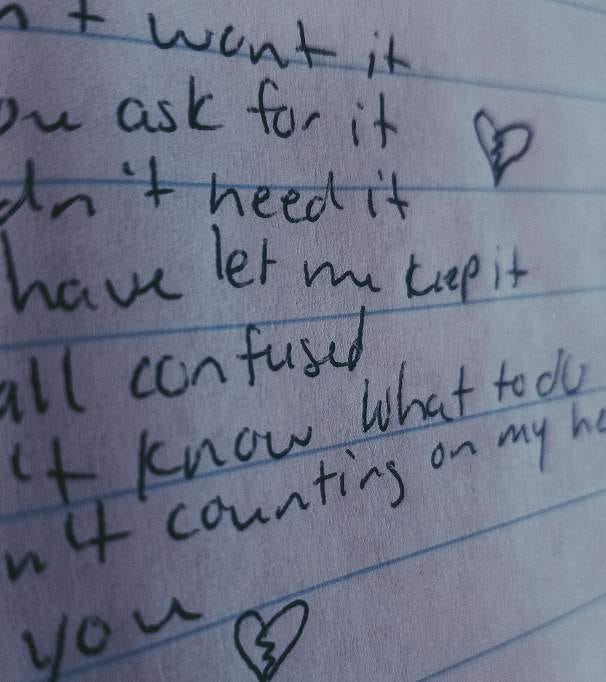 n't want it
ou ask for it
dn't need it
have let me keep it
all confused
't know what to do
n't counting on my he
you